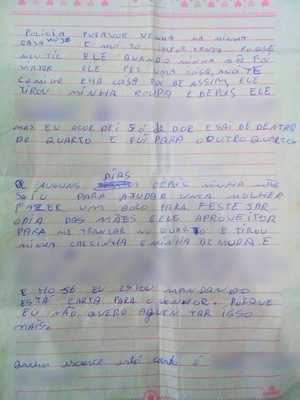 POLICIA PUFAVOR VENHA NA MINHA
CASA HOJE E MUITO IMPORTANTE PORQUE
MEU TIL ELE QUANDO MINHA MÃE FOI
VIAJAR ELE FES UMA COISA, NÃO TE
COMIDO ESSA COISA FOI BE ASSIM, ELE
TIROU MINHA ROUPA E DEPOIS ELE
MAZ EU ACOR DEI SÓ DE DOR E SAI DE DENTRO
DO QUARTO E FUI PARA O OUTRO QUARTO
ALGUNS DIAS DEPOIS MINHA MÃE
SAIU PARA AJUDAR UMA MULHER
FAZER UM BOLO PARA FESTEJAR
O DIA DAS MÃES E ELE APROVEITOR
PARA ME TRANCAR NO QUARTO E TIROU
MINHA CALCINHA E MINHA BEMUDA E
E HOJE EU ESTOU MANDANDO
ESTÁ CARTA PARA O SENHOR, PORQUE
EU NÃO QUERO AQUEN TAR ISSO
MAIS.
Quem escreve está carta é